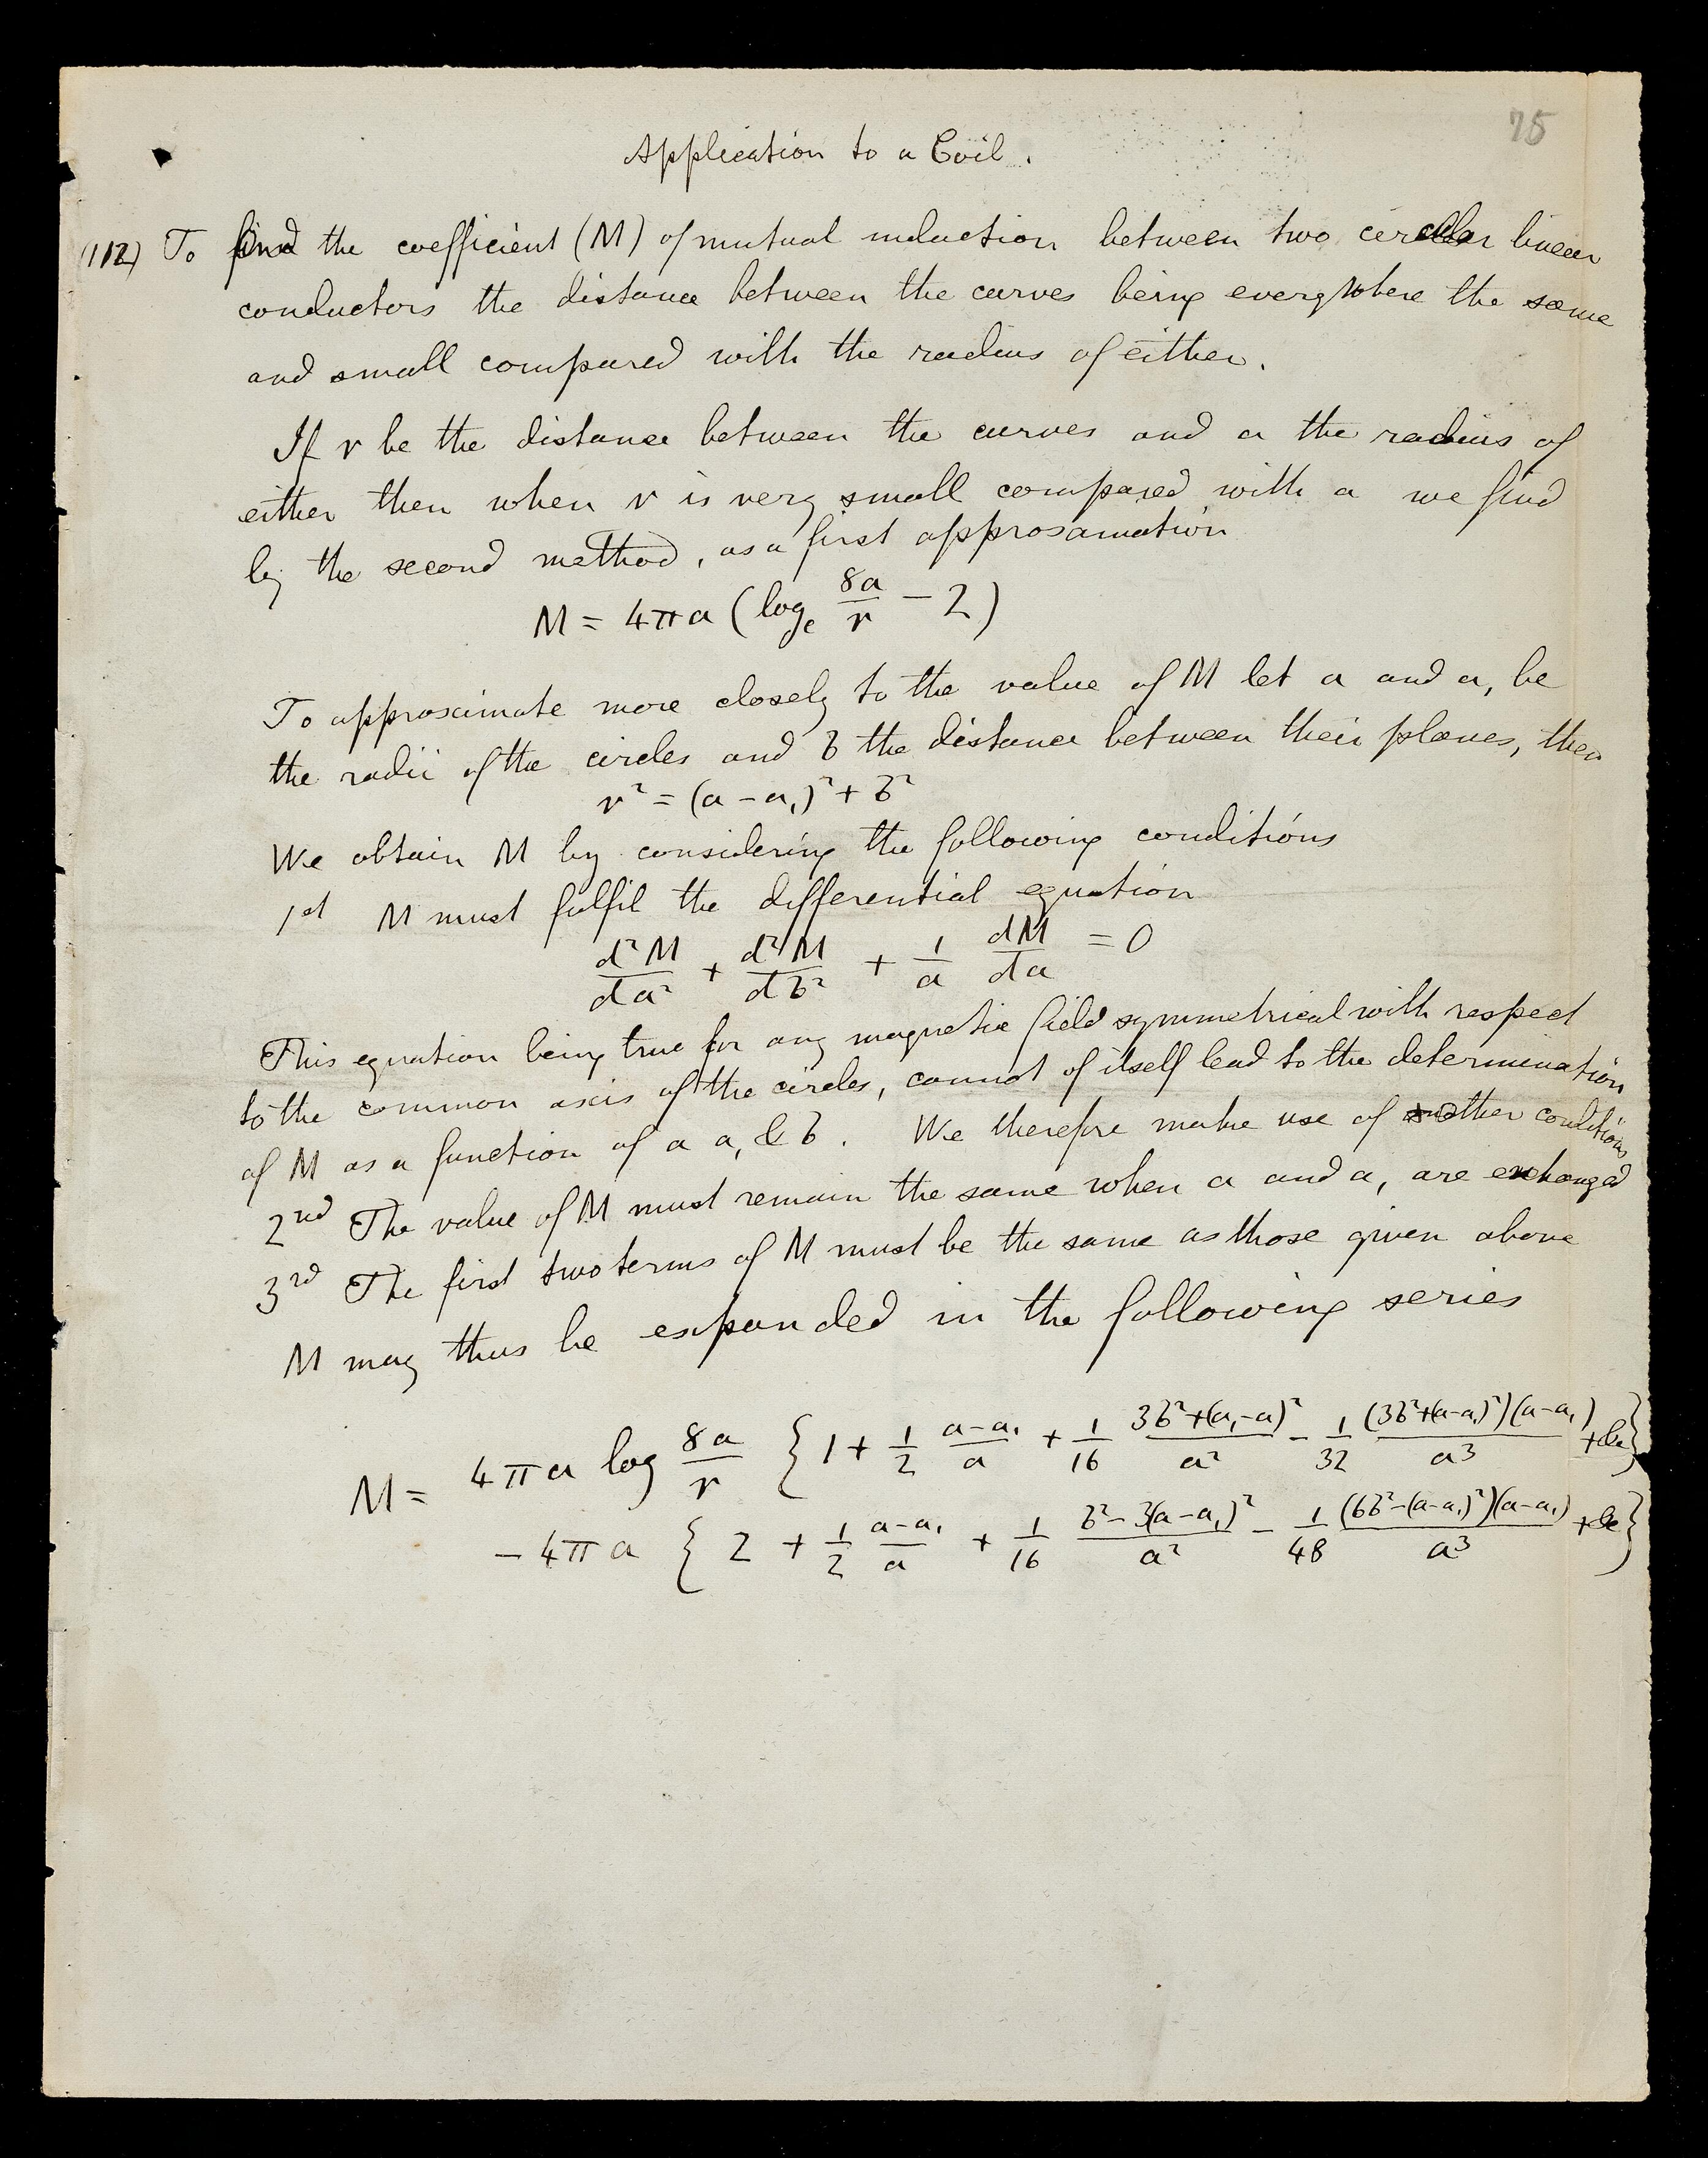 75
Application to a Coil.
(112) To find the coefficient (M) of mutual induction between two circular linear
conductors the distance between the curves being everywhere the same
and small compared with the radius of either.
If r be the distance between the curves and a the radius of
either then when r is very small compared with a we find
by the second method, as a first approxamation
M = 4πa (logₑ 8a/r − 2)
To approximate more closely to the value of M let a and a₁ be
the radii of the circles and b the distance between their planes, then
r² = (a − a₁)² + b²
We obtain M by considering the following conditions
1st M must fulfil the differential equation
d²M/da² + d²M/db² + 1/a dM/da = 0
This equation being true for any magnetic field symmetrical with respect
to the common axis of the circles, cannot of itself lead to the determination
of M as a function of a a₁ & b. We therefore make use of other conditions
2nd The value of M must remain the same when a and a₁ are exchanged
3rd The first two terms of M must be the same as those given above
M may thus be expanded in the following series
M = 4πa log 8a/r {1 + 1/2 (a−a₁)/a + 1/16 (3b²+(a₁−a)²)/a² − 1/32 ((3b²+(a−a₁)²)(a−a₁))/a³ + &c}
− 4πa {2 + 1/2 (a−a₁)/a + 1/16 (b²−3(a−a₁)²)/a² − 1/48 ((6b²−(a−a₁)²)(a−a₁))/a³ + &c}